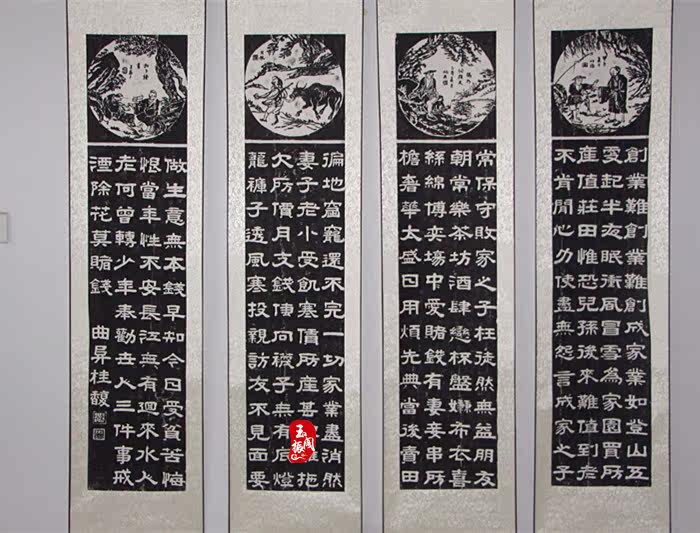 創業難創業難創成家業如登山五
更起半夜眠衝風冒雪為家園買房
産值莊田惟恐兒孫後來難值到老
不肯閒心力使盡無怨言成家之子
常保守敗家之子枉徒然無益朋友
朝常樂茶坊酒肆戀杯盤嫌布衣喜
絲綿傅奕場中愛賭錢有妻妾串房
檐奢華太盛日用煩先典當後賣田
徧地窟竉還不完一切家業盡消然
妻子老小受飢寒債房産甚拖
欠房價月支錢使向襪子無有后燈
籠褲子透風寒投親訪友不見面要
做生意無本錢早知今日受貧苦悔
恨當年性不安長江無有迴來水人
老何曾轉少年奉勸世人三件事戒
酒除花莫賭錢 曲阜桂馥